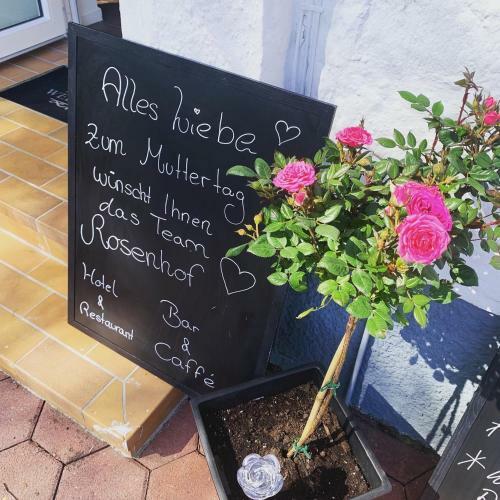 Alles Liebe ♡
zum Muttertag
wünscht Ihnen
das Team
Rosenhof ♡
Hotel
&
Restaurant
Bar
&
Caffé